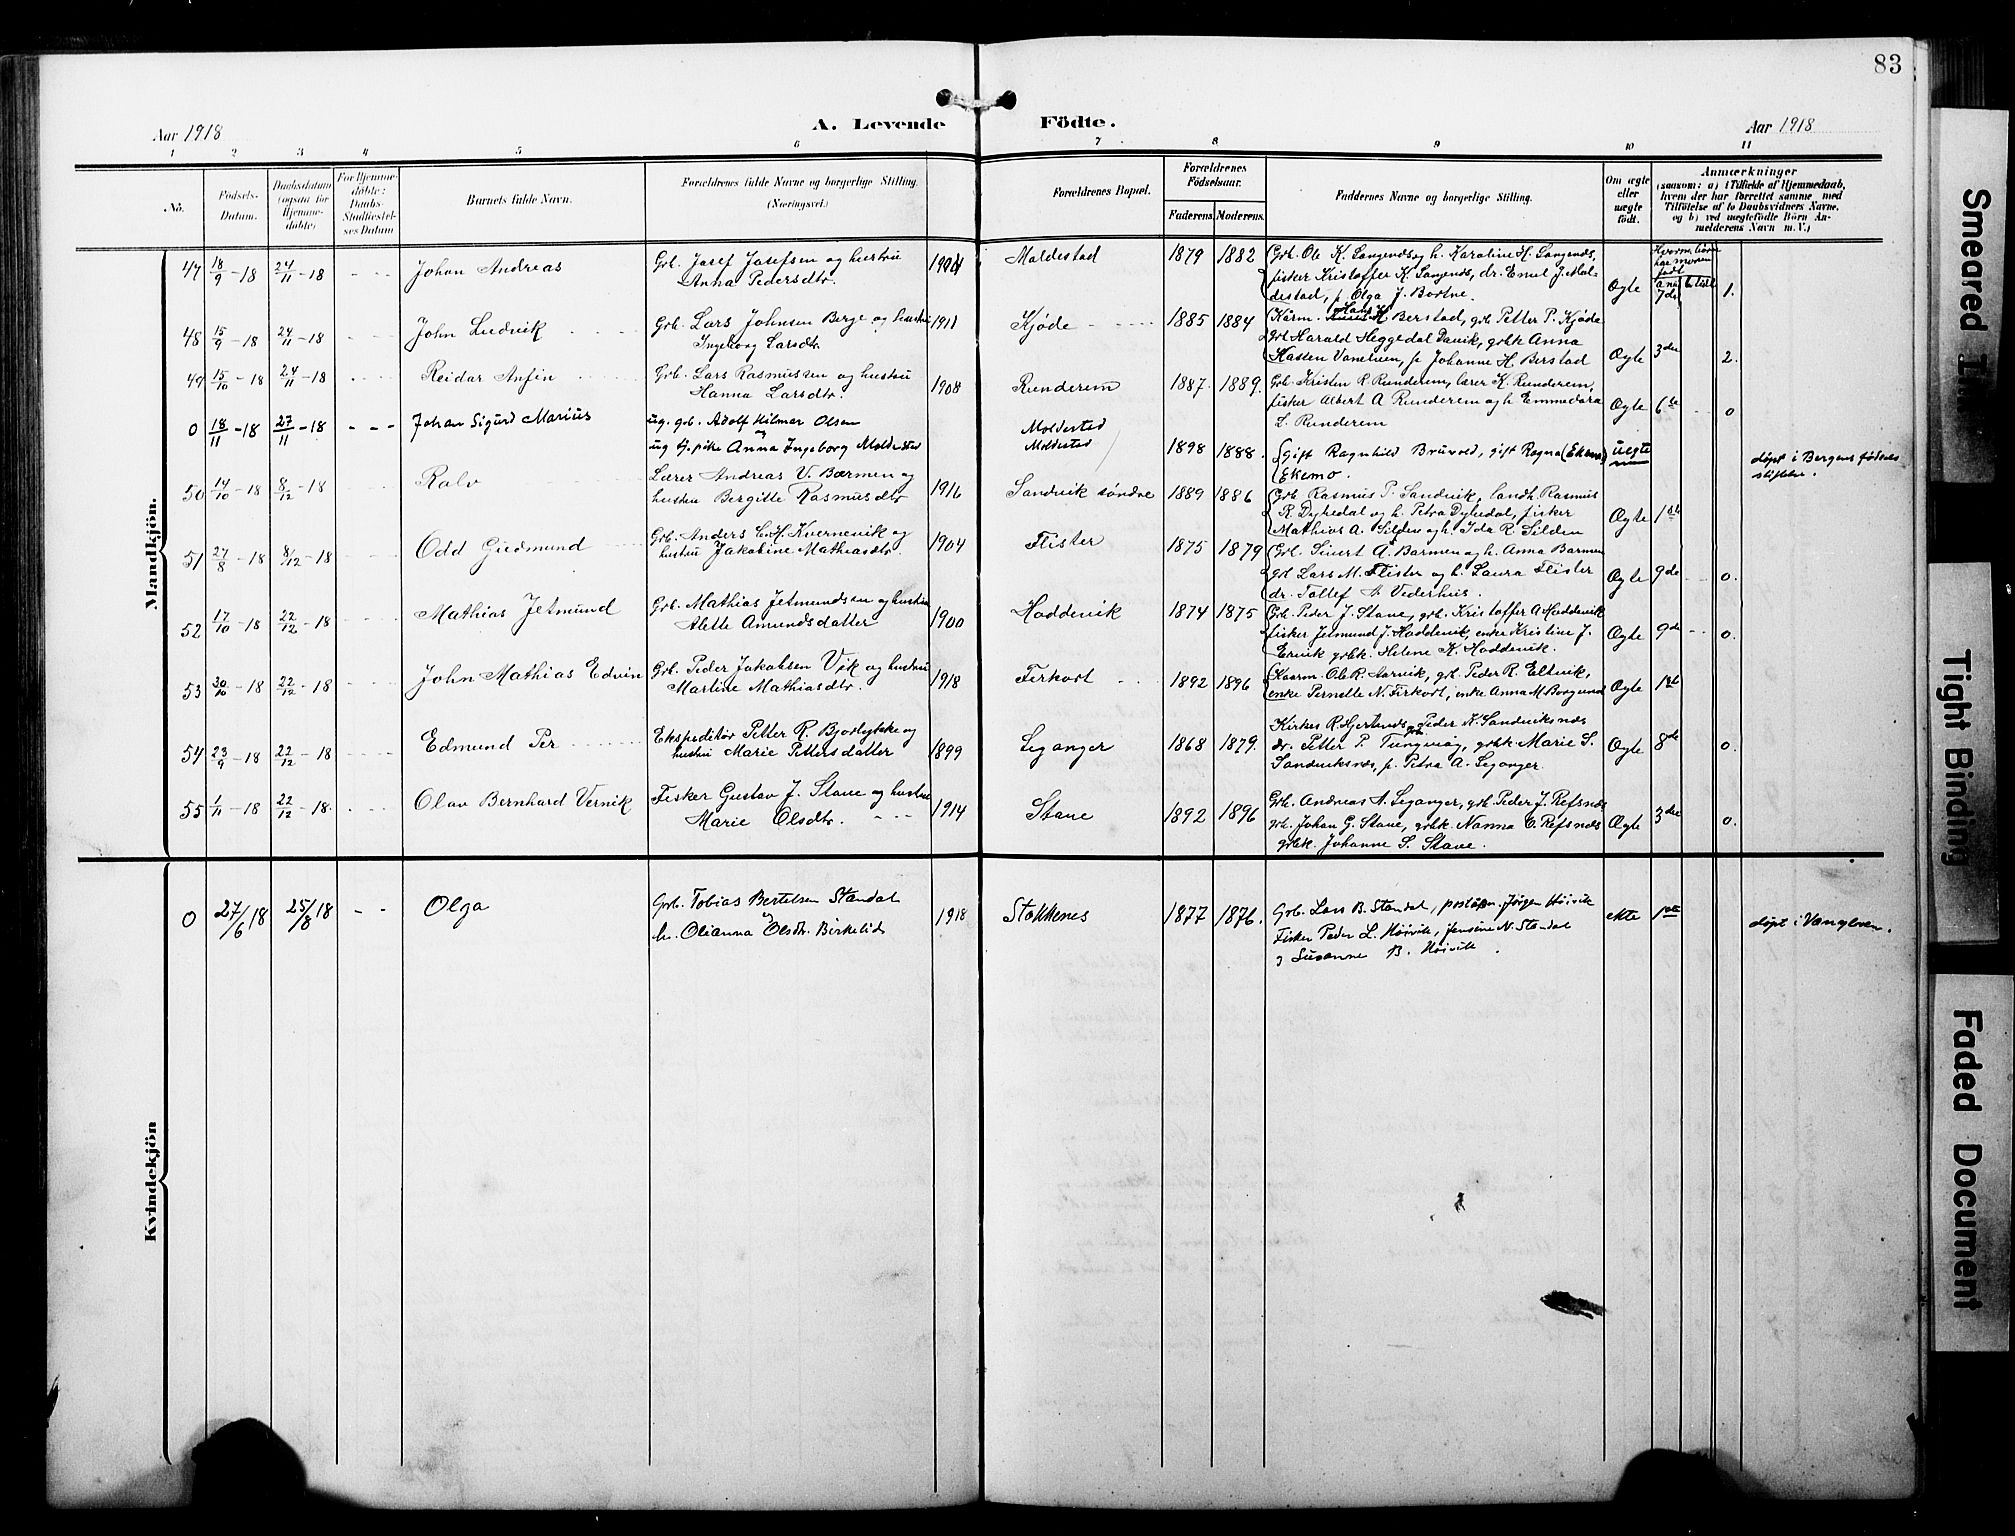 83
Aar 1918
A. Levende
Födte.
Aar 1918
1 2 3 4 5 6 7 8 9 10 11
No.
Födsels-
Datum.
Daabsdatum
(ogsaa for
Hjemme-
döbte)
For Hjemme-
döbte:
Daabs-
Stadfæstel-
ses Datum
Barnets fulde Navn.
Forældrenes fulde Navne og borgerlige Stilling.
(Næringsvei.)
Forældrenes Bopæl.
Forældrenes
Födselsaar.
Faderens. Moderens.
Faddernes Navne og borgerlige Stilling.
Om ægte
eller
uægte
födt.
Anmærkninger
(saasom: a) i Tilfælde af Hjemmedaab,
hvem der har forrettet samme, med
Tilföielse af to Daabsvidners Navne,
og b) ved uægtefödte Börn An-
melderens Navn m. V.)
Mandkjön.
47 18/9 - 18 24/11 - 18 Johan Andreas
Grb. Josef Josefsen og hustru
Anna Pedersdtr.
Moldestad 1879 1882
Grb. Ole K. Langenes og h. Karoline H. Langenes,
fisker Kristoffer K. Langenes, dr. Emil J. Mol-
destad, p. Olga J. Bortne.
Ægte 7de 1.
48 15/9 - 18 24/11 - 18 John Ludvik
Grb. Lars Johnsen Berge og hustru 1911
Ingeborg Larsdtr.
Kjøde 1885 1884
Hans H Berstad, grb. Petter P. Kjøde
grb Harald Heggedal Davik, grbk Anna
p Johanne H Berstad
Ægte 3die 2.
49 15/10 - 18 24/11 - 18 Reidar Anfin
Grb. Lars Rasmussen og hustru 1908
Hanna Larsdtr.
Runderem 1887. 1889.
Grb. Kristen R. Runderem, lærer K. Runderem,
fisker Albert A Runderem og h Emmedora
L. Runderem
Ægte 6te 0
0 18/11 - 18 27/11 - 18 Johan Sigurd Marius
ug. grb. Adolf Hilmar Olsen
og
ug tj. pike Anna Ingeborg Moldestad
Moldestad
Moldestad
1898 1888.
gift Ragnhild Bruvold, gift Ragna (Ekemo)
Ekemo.
uegte
døpt i Bergens fødsels
stiftelse.
50 14/10 - 18 8/12 - 18 Ralv
Lærer Andreas V. Barmen og
hustru Bergitte Rasmusdtr 1916
Sandvik søndre 1889 1886
Grb. Rasmus P. Sandvik, landh. Rasmus
R. Dyhedal og h. Petra Dyhedal, fisker
Mathias A. Silden og h. Ida R Silden
Ægte 1ste
51 27/8 - 18 8/12 - 18 Odd Gudmund
Grb. Anders E. H. Kvernevik og
hustru Jakobine Mathiasdtr. 1904
Flister 1875 1879
Grb. Sivert A. Barmen og h. Anna Barmen
grb Lars M. Flister og h. Laura Flister
dr. Tollef A Vederhus.
Ægte 9de 0.
52 17/10 - 18 22/12 - 18 Mathias Jetmund
Grb. Mathias Jetmundsen og hustru
Alette Amundsdatter 1900
Hoddevik 1874 1875
Grb. Peder J. Stave, grb. Kristoffer A Hoddevik
fisker Jetmund J. Hoddevik, enke Kristine J.
Ervik grbk. Helene K. Hoddevik.
Ægte 9de 0.
53 30/10 - 18 22/12 - 18 John Mathias Edvin
Grb. Peder Jakobsen Vik og hustru
Martine Mathiasdtr. 1918
Firkort 1892 1896
Kaarm. Ole R. Harvik, grb. Peder R. Eltvik,
enke Pernelle N. Firkort, enke Anna M. Borgund
Ægte 1ste
54 23/9 - 18 22/12 - 18 Edmund Per
Ekspeditør Petter R. Bjorlykke og
hustru Marie Pettersdatter 1899
Leganger 1868 1879.
Kirkes. R. Hjertenes Peder K. Sandviksnes
dr. Petter P. Tungevåg, grbk. Marie S.
Sandviksnes, p. Petra A. Leganger.
Ægte 8de 0.
55 1/11 - 18 22/12 - 18. Olav Bernhard Vernik
Fisker Gustav J. Stave og hustru
Marie Olsdtr. 1914
Stave 1892 1896
Grb. Andreas A. Leganger, grb. Peder J. Refsnes
grb. Johan G. Stave, grbk. Nanna E. Refsnes
grbk. Johanne S. Stave.
Ægte 3die 0.
Kvindekjön
0 27/6 18 25/8 18 Olga
Grb. Tobias Bertelsen Standal
og
h. Olianna Olsdtr. Birkelid 1918
Stokkenes 1877 1876.
Grb. Lars B. Standal, postaapn. Jørgen Hoivik
Fisker Peder L. Hoivik, Jensine N. Standal
og Susanne B. Hoivik.
ekte 1ste
døpt i Vanylven.
Smeared Ink
Tight Binding
Faded Document